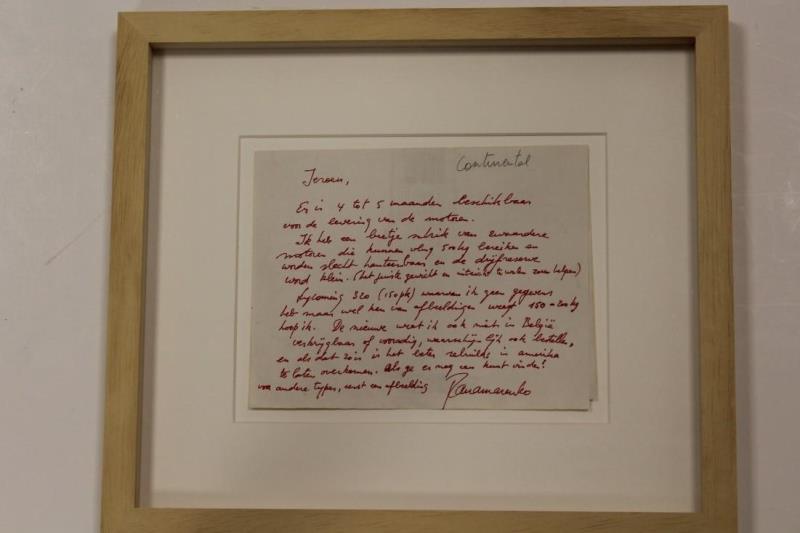 Continental
Jeroen,
Er is 4 tot 5 maanden beschikbaar
voor de levering van de motoren.
Ik heb een beetje schrik van zwaardere
motoren die kunnen vlug 500kg bereiken en
worden slecht hanteerbaar en de drijfreserve
word klein. (het juiste gewicht en te weten zou helpen)
Lycoming 320 (150pk) waarvan ik geen gegevens
heb maar wel ken van afbeeldingen weegt 150 - 200kg
hoop ik. De nieuwe weet ik ook niets in België
verkrijgbaar of voorradig, waarschijnlijk ook bestellen,
en als dat zo is is het beter rebuilds in amerika
te laten overkomen. Als ge er nog een kunt vinden!
voor andere types, eerst een afbeelding
Panamarenko